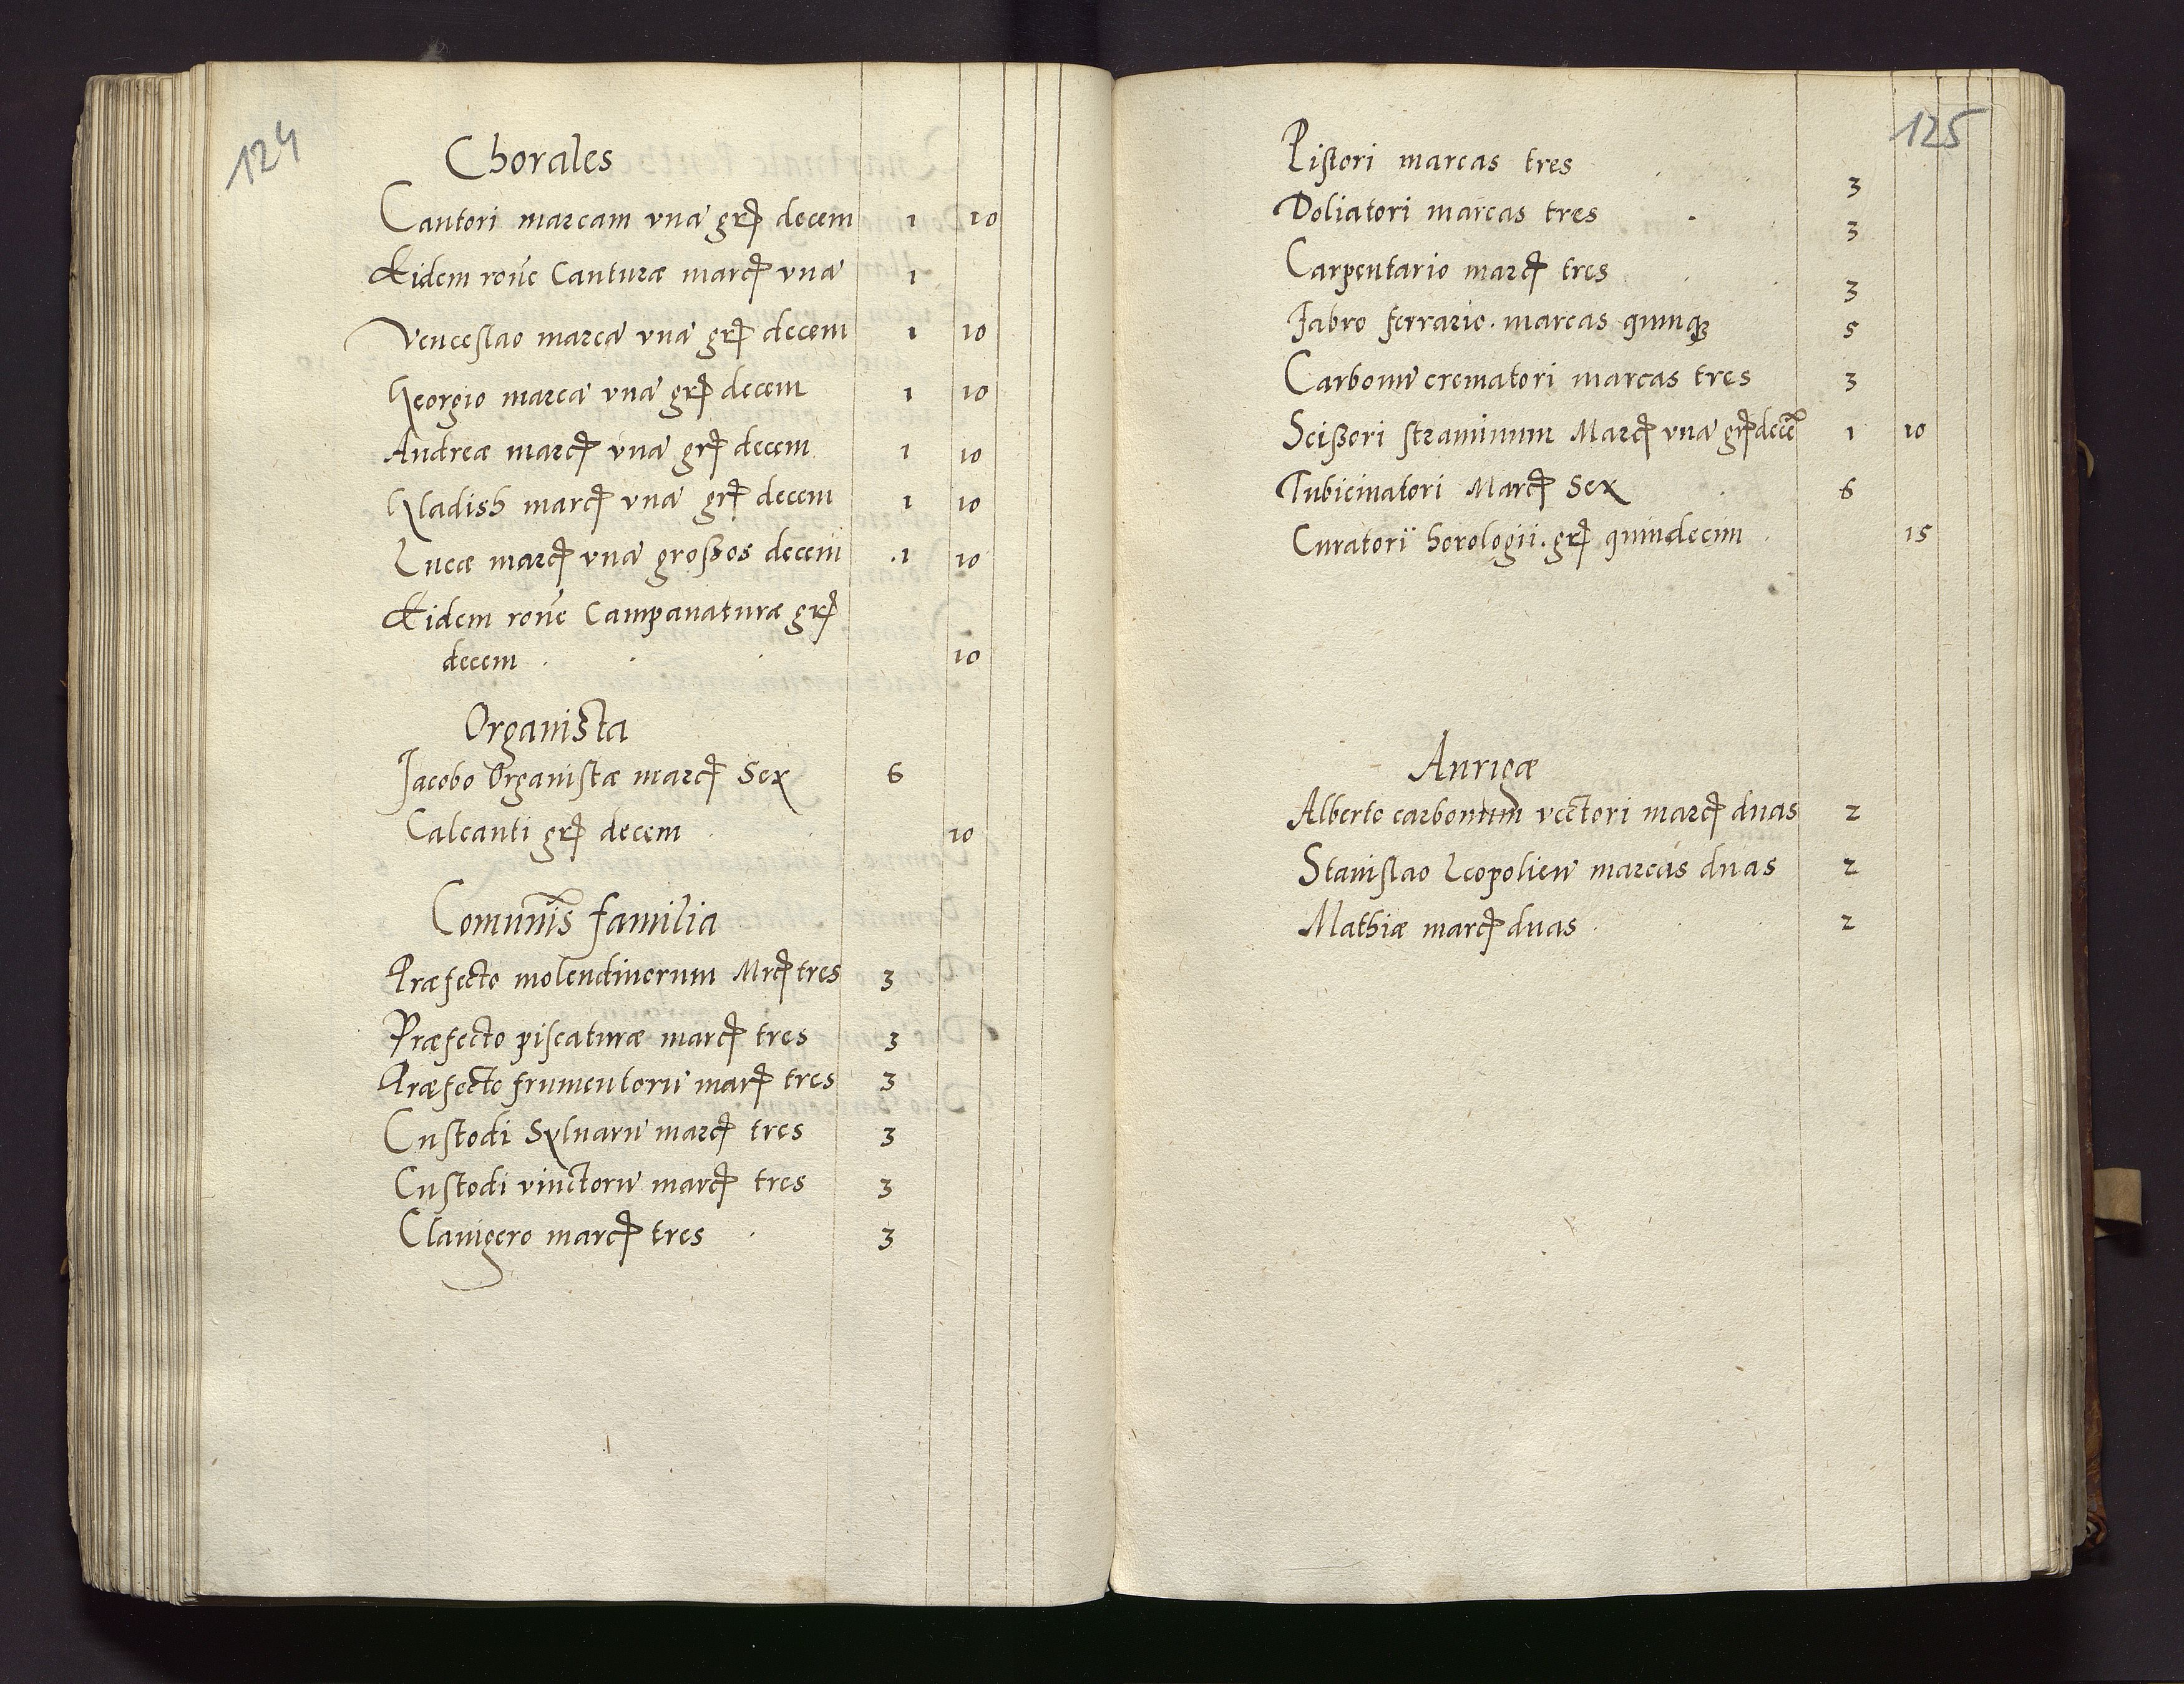 124
Chorales
Cantori marcam vnā grꝭ decem 1 10
Eidem rōne Canturæ marcꝭ vnā 1
Venceslao marcā vnā grꝭ decem 1 10
Georgio marcā vnā grꝭ decem 1 10
Andreæ marcꝭ vnā grꝭ decem 1 10
Gladish marcꝭ vnā grꝭ decem 1 10
Lucæ marcꝭ vnā großos decem 1 10
Eidem rōne Campanaturæ grꝭ
decem 10
Organista
Jacobo Organistæ marcꝭ Sex 6
Calcanti grꝭ decem 10
Comunis familia
Præfecto molendinorum Mrcꝭ tres 3
Præfecto piscaturæ marcꝭ tres 3
Præfecto frumentorū marꝭ tres 3
Custodi Syluarū marcꝭ tres 3
Custodi vinctorū marcꝭ tres 3
Clauigero marcꝭ tres 3
125
Pistori marcas tres 3
Doliatori marcas tres 3
Carpentario marcꝭ tres 3
Fabro ferrario. marcas quinqꝫ 5
Carbonū crematori marcas tres 3
Scißori straminum Marcꝭ vnā grꝭ decē 1 10
Tubicinatori Marcꝭ Sex 6
Curatori horologii. grꝭ quindecim 15
Aurigæ
Alberto carbonum vectori marcꝭ duas 2
Stanislao Leopolien̄ marcas duas 2
Mathiæ marcꝭ duas 2